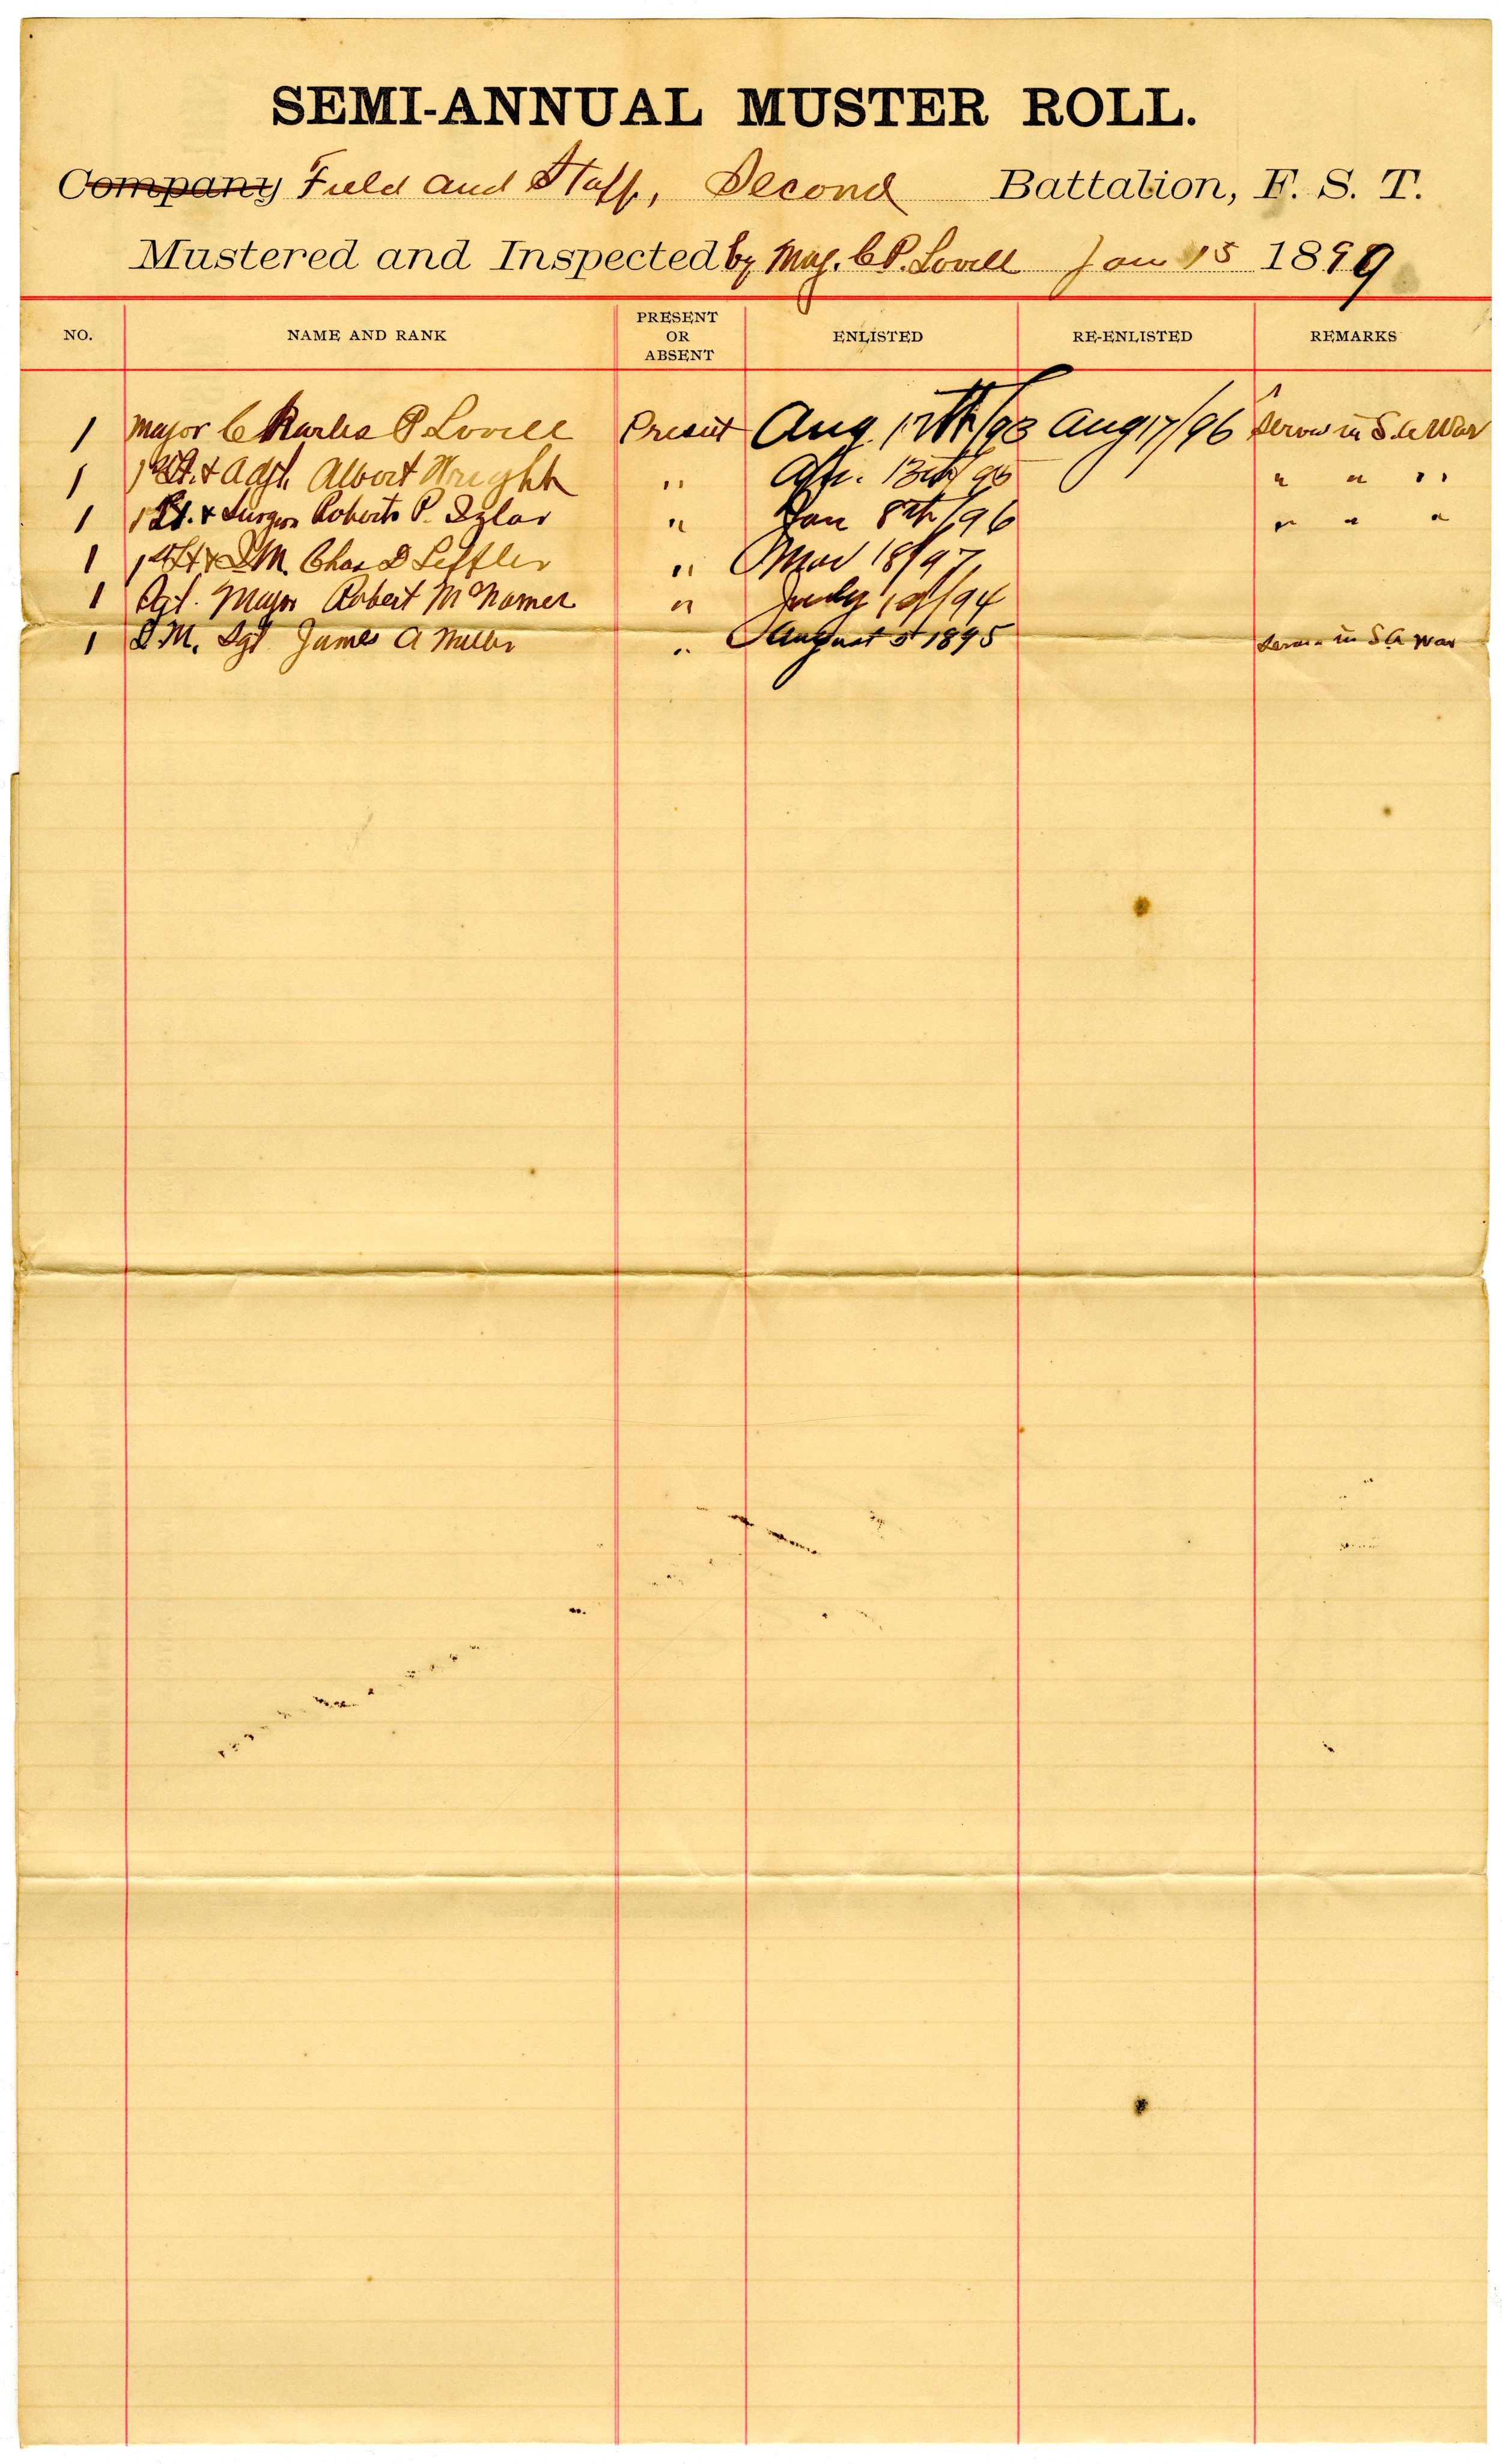 SEMI-ANNUAL MUSTER ROLL.
Company Field and Staff, Second Battalion, F. S. T.
Mustered and Inspected by Maj. C P. Lovell Jan 15 1899
NO. NAME AND RANK PRESENT OR ABSENT ENLISTED RE-ENLISTED REMARKS
1 Major Charles P Lovell Present Aug 17th/93 Aug 17/96 in War
1 1st Lt. & Adjt. Albert Wright " Apr. " " "
1 1 Lt. & Surgeon Roberts P. Izlar " Jan 8th/96 " " "
1 1st Lt & Q M. Chas D Leffler " Mar 18/97
1 Sgt. Major Robert McNamer " July /94
1 Q M. Sgt James A Miller " August 5 1895 in S A War